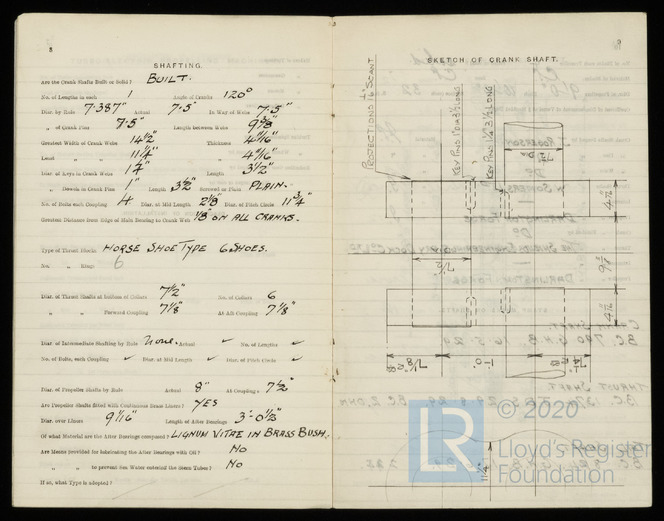 8
SHAFTING.
Are the Crank Shafts Built or Solid? BUILT.
No. of Lengths in each 1 Angle of Cranks 120°
Diar. by Rule 7.387" Actual 7.5" In Way of Webs 7.5"
„ of Crank Pins 7.5" Length between Webs 9 5/8"
Greatest Width of Crank Webs 14 1/2" Thickness 4 11/16"
Least „ 11 1/4" „ 4 11/16"
Diar. of Keys in Crank Webs 1 1/4" Length 3 1/2"
„ Dowels in Crank Pins 1" Length 3 1/2" Screwed or Plain PLAIN.
No. of Bolts each Coupling 4 Diar. at Mid Length 2 1/8" Diar. of Pitch Circle 11 3/4"
Greatest Distance from Edge of Main Bearing to Crank Web 1/8" ON ALL CRANKS.
Type of Thrust Blocks HORSE SHOE TYPE 6 SHOES.
No. „ Rings 6
Diar. of Thrust Shafts at Bottom of Collars 7 1/2" No. of Collars 6
„ „ Forward Coupling 7 1/8" At Aft Coupling 7 1/8"
Diar. of Intermediate Shafting by Rule None. Actual ✓ No. of Lengths ✓
No. of Bolts, each Coupling ✓ Diar. at Mid Length ✓ Diar. of Pitch Circle ✓
Diar. of Propeller Shafts by Rule Actual 8" At Couplings 7 1/2"
Are Propeller Shafts fitted with Continuous Brass Liners? YES
Diar. over Liners 9 1/16" Length of After Bearings 3'-0 1/2"
Of what Material are the After Bearings composed? LIGNUM VITAE IN BRASS BUSH.
Are Means provided for lubricating the After Bearings with Oil? No
„ „ to prevent Sea Water entering the Stern Tubes? No
If so, what Type is adopted?
9
SKETCH OF CRANK SHAFT.
KEY PINS 1" DIA 3 1/2" LONG
7 1/2
1'-0"
11 1/4"
LR
© 2020
Lloyd's Register
Foundation